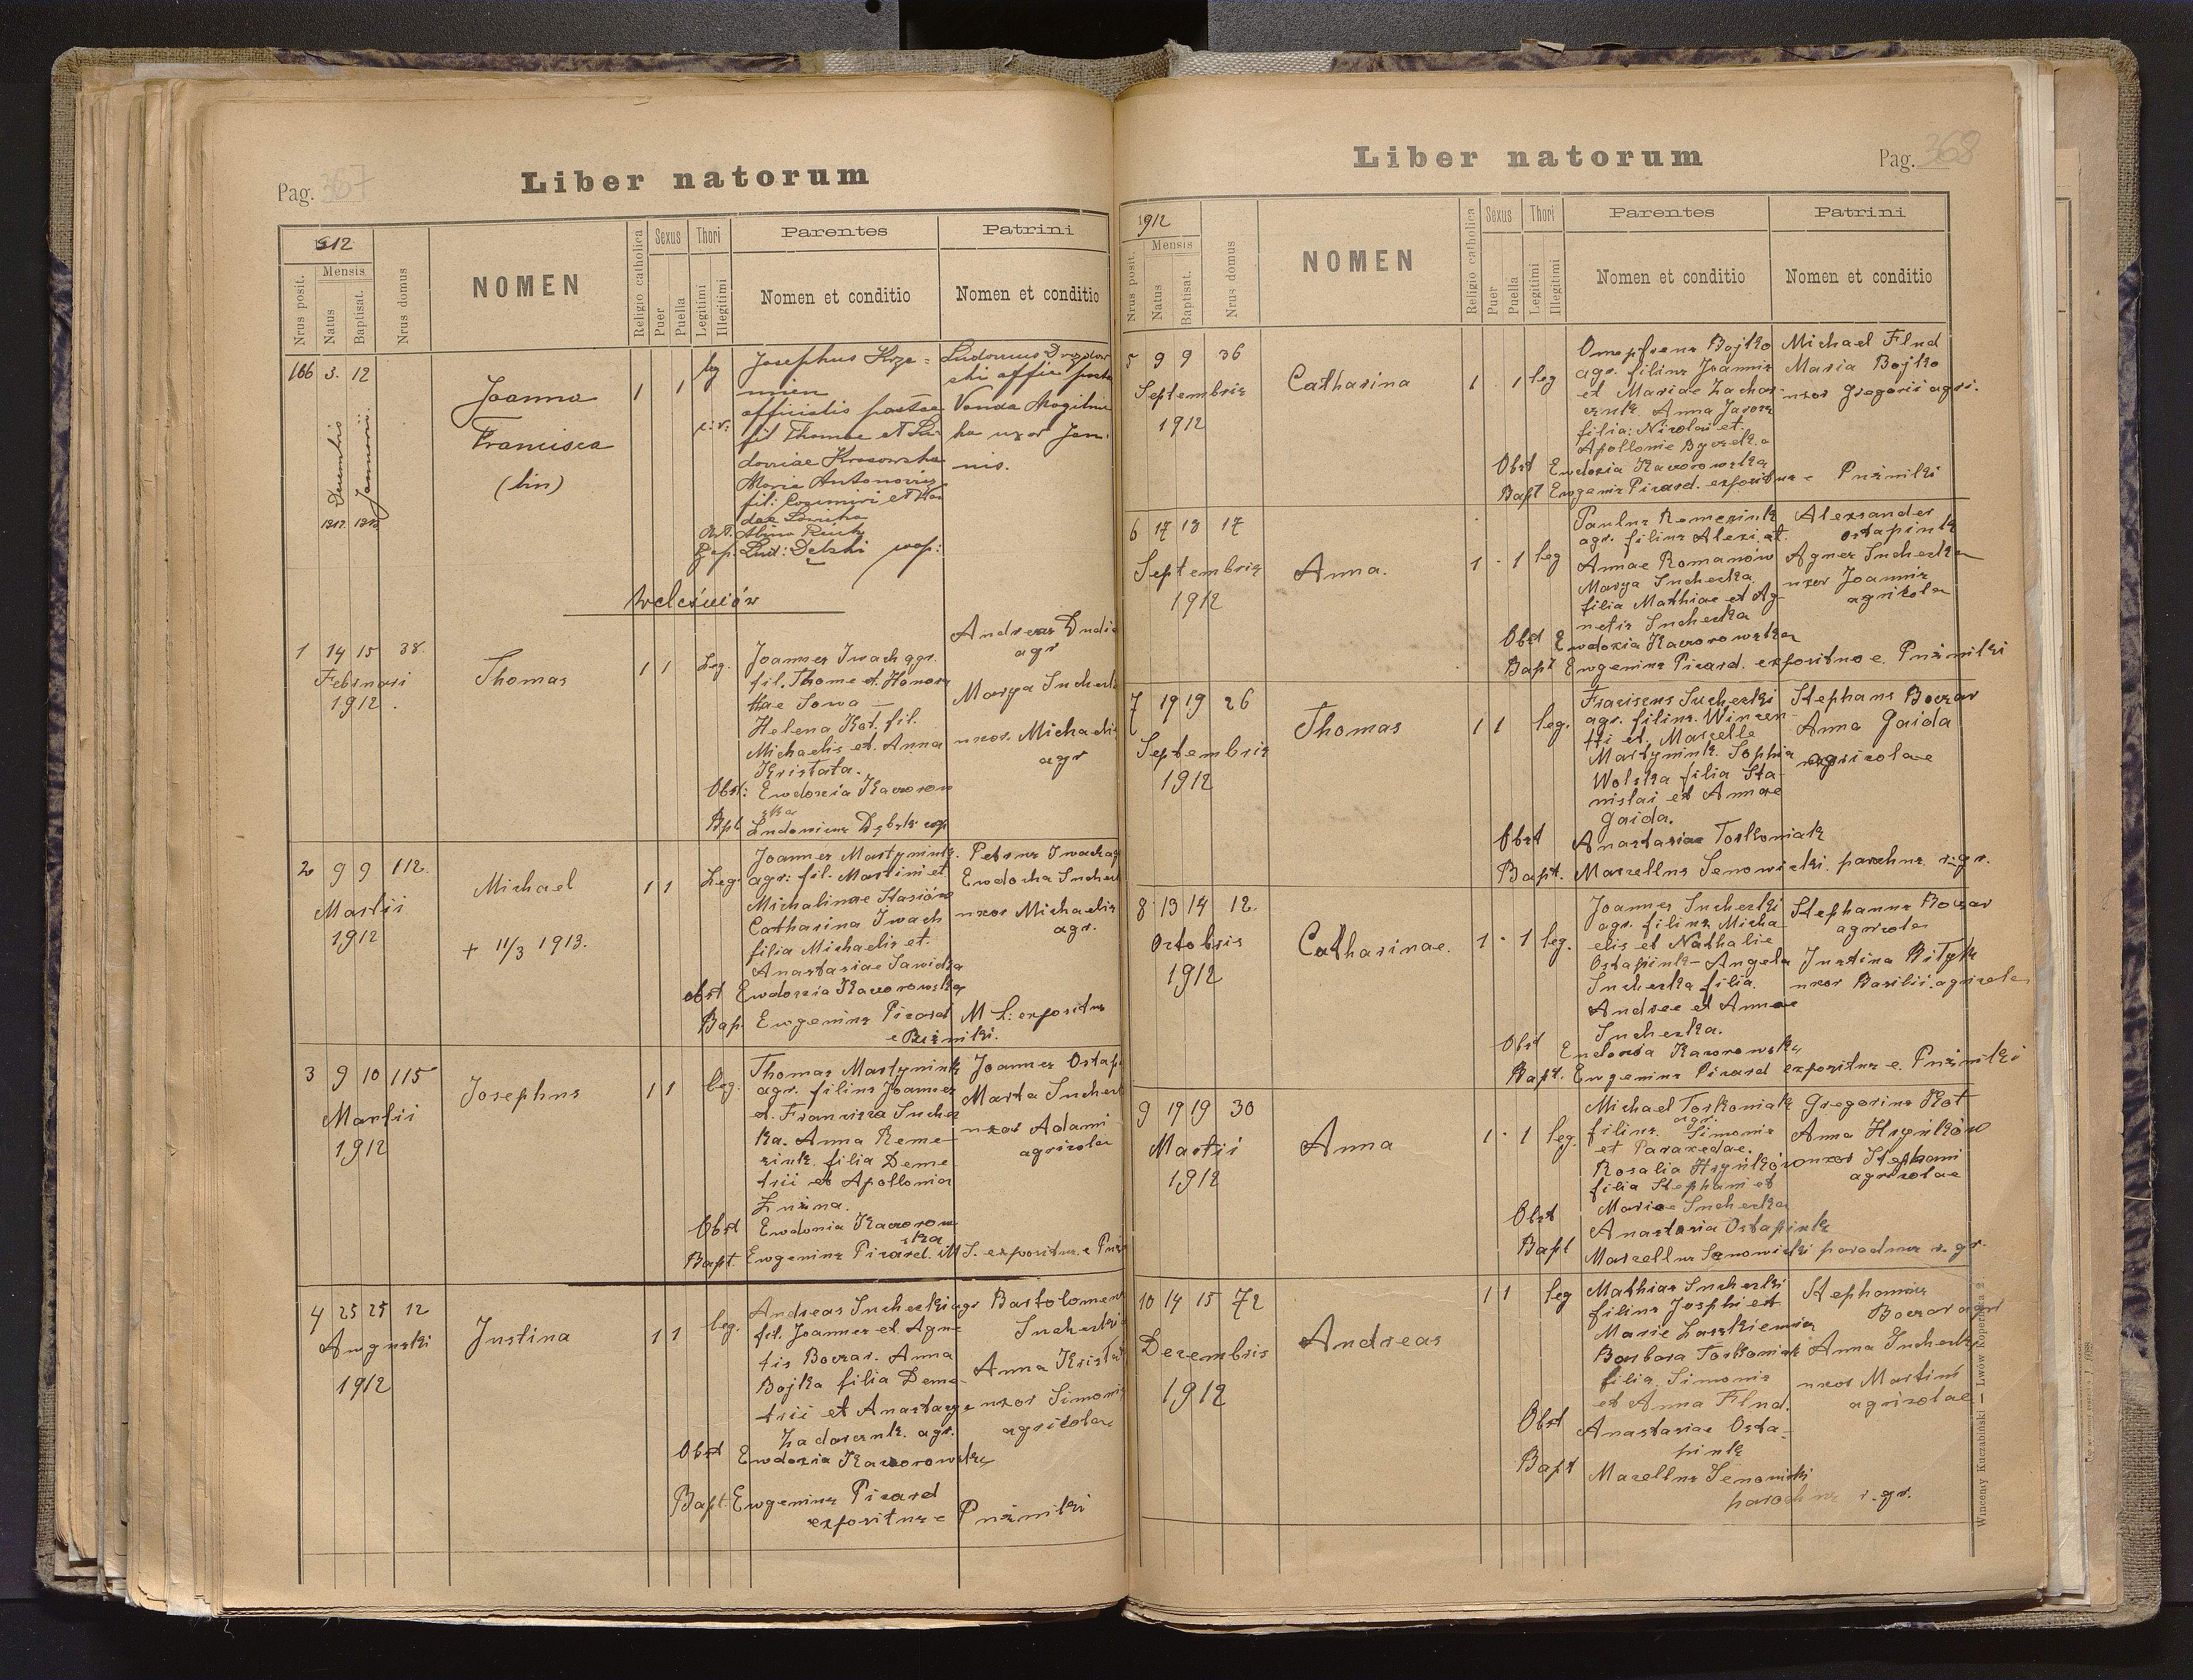 Pag. 367
Liber natorum
912
Nrus posit.
Mensis
Natus
Baptisat.
Nrus domus
NOMEN
Religio catholica
Sexus
Puer
Puella
Thori
Legitimi
Illegitimi
Parentes
Nomen et conditio
Patrini
Nomen et conditio
166 3. 12
Decembris
Januarii
Joanna
Francisca
(bin)
1 1
leg
Josephus Krze=
mien
officialis postae
fil Thomae et Lu
doviae Krasowska
Maria Antonowicz
fil: Casimiri et
Obst. Albina
Bap. Lud: Dębski coop:
Ludovicus
ski offic. posta
Vanda Mogilnic
ka uxor Joan
nis.
Weleśniów
1 14 15 38.
Februari
1912.
Thomas
1 1
Leg.
Joannes Iwach agr.
fil. Thome et. Honora
ttae Sowa
Helena Kot. fil.
Michaelis et. Anna
Kristata.
Obst: Ewdoxia Kaworow
ska
Bpt Ludovicus Dębski cop
Andreas Dudia
agr
Marya Sucheck
uxor. Michaelis
agr
2 9 9 112.
Martii
1912
Michael
+ 11/3 1913.
1 1
Leg.
Joannes Martyniuk.
agr: fil. Martini et
Michalinae Stasiów
Catharina Iwach
filia Michaelis et.
Anastasiae Sawicka
obst Ewdoxia Kaworowska
Bap. Ewgenius Picard M S: expositus
e Puźniki.
Petrus Iwach ag
Ewdocha Sucheck
uxor Michaelis
agr.
3 9 10 115
Martii
1912
Josephus
1 1
leg.
Thomas Martyniuk
agr. filius Joannes
et. Francisca Suchec
ka. Anna Reme-
ziuk. filia Deme
trii et Apollonia
Obst Ewdoxia Kaworow
ska
Bapt. Ewgenius Picard. M S. expositus. e Puź
Joannes Ostap
Marta Sucheck
uxor Adami
agricolae
4 25 25 12
Augusti
1912
Justina
1 1
leg.
Andreas Suchecki agr
fil. Joannes et. Agne
tis Boczar. Anna
Bojka filia Deme-
trii et Anastasye
agr.
Obst Ewdoxia Kaworowska
Bapt. Ewgenius Picard
expositus e Puźniki
Bartolomeus
Suchecki
Anna Krista
uxor Simonis
agricolae
Liber natorum
Pag. 368
1912
Nrus posit.
Mensis
Natus
Baptisat.
Nrus domus
NOMEN
Religio catholica
Sexus
Puer
Puella
Thori
Legitimi
Illegitimi
Parentes
Nomen et conditio
Patrini
Nomen et conditio
5 9 9 36
Septembris
1912
Catharina
1 . 1 leg
Bojko
agr. filius Joannis
et Mariae Zachar-
czuk. Anna
filia: Nicolai et.
Apollonie
Obst Ewdoxia Kaworowska
Bapt Ewgenis Picard. expositus e Puźniki
Michael Flud
Maria Bojko
uxor Gregorii agri.
6 17 18 17
Septembris
1912
Anna.
1 . 1 leg
Paulus Remeziuk
agr. filius Alexi. et.
Annae Romanów
Marya Suchecka
filia Mathiae et Ag-
netis Suchecka
Obst Ewdoxia Kaworowska
Bapt Ewgenius Picard. expositus e. Puźniki
Alexsander
Ostapiuk
Agnes Suchecka
uxor Joannis
agricola
7 19 19 26
Septembris
1912
Thomas
1 1 leg.
Franciscus Suchecki
agr. filius. Wincen-
tii et. Marcelle
Martyniuk. Sophia
Wolska filia Sta-
nislai et Annae
Gaida.
Obst Anastasiae Toskoniak
Bapt. Marcellus Senowicki. parochus r.gr.
Stephans Boczar
Anna Gaida
agricolae
8 13 14 12.
Octobris
1912
Catharinae.
1 . 1 leg.
Joannes Suchecki
agr. filius Micha-
elis et Nathalie
Ostapiuk- Angela
Suchecka filia.
Andree et Annae
Suchecka.
Obst Ewdoxia Kaworowska
Bapt. Ewgenius Picard expositus e. Puźniki
Stephanus Boczar
agricola
Justina Bityk
uxor Basilii. agricolae
9 19 19 30
Martii
1912
Anna
1 . 1 leg.
Michael Toskoniak
agr.
filius. Simonis
et Paraxedae.
Rosalia Hryńków
filia Stephani et
Mariae Suchecka
Obst Anastasia Ostapiuk
Bapt Marcellus Senowicki parochus r. gr.
Gregorius Kot
Anna Hryńków
uxor Stephani
agricolae
10 14 15 72
Decembris
1912
Andreas
1 1 leg
Mathias Suchecki
filius Josphi et
Marie Laszkiewicz
Barbara Toskoniak
filia. Simonis
et Anna Flud.
Obst Anastasiae Osta-
piuk
Bapt Marcellus Senowicki
parochus r.gr.
Stephanus
Boczar agr
Anna Suchecka
uxor Martini
agricolae
Wincenty Kuczabiński — Lwów Kopernika 2.